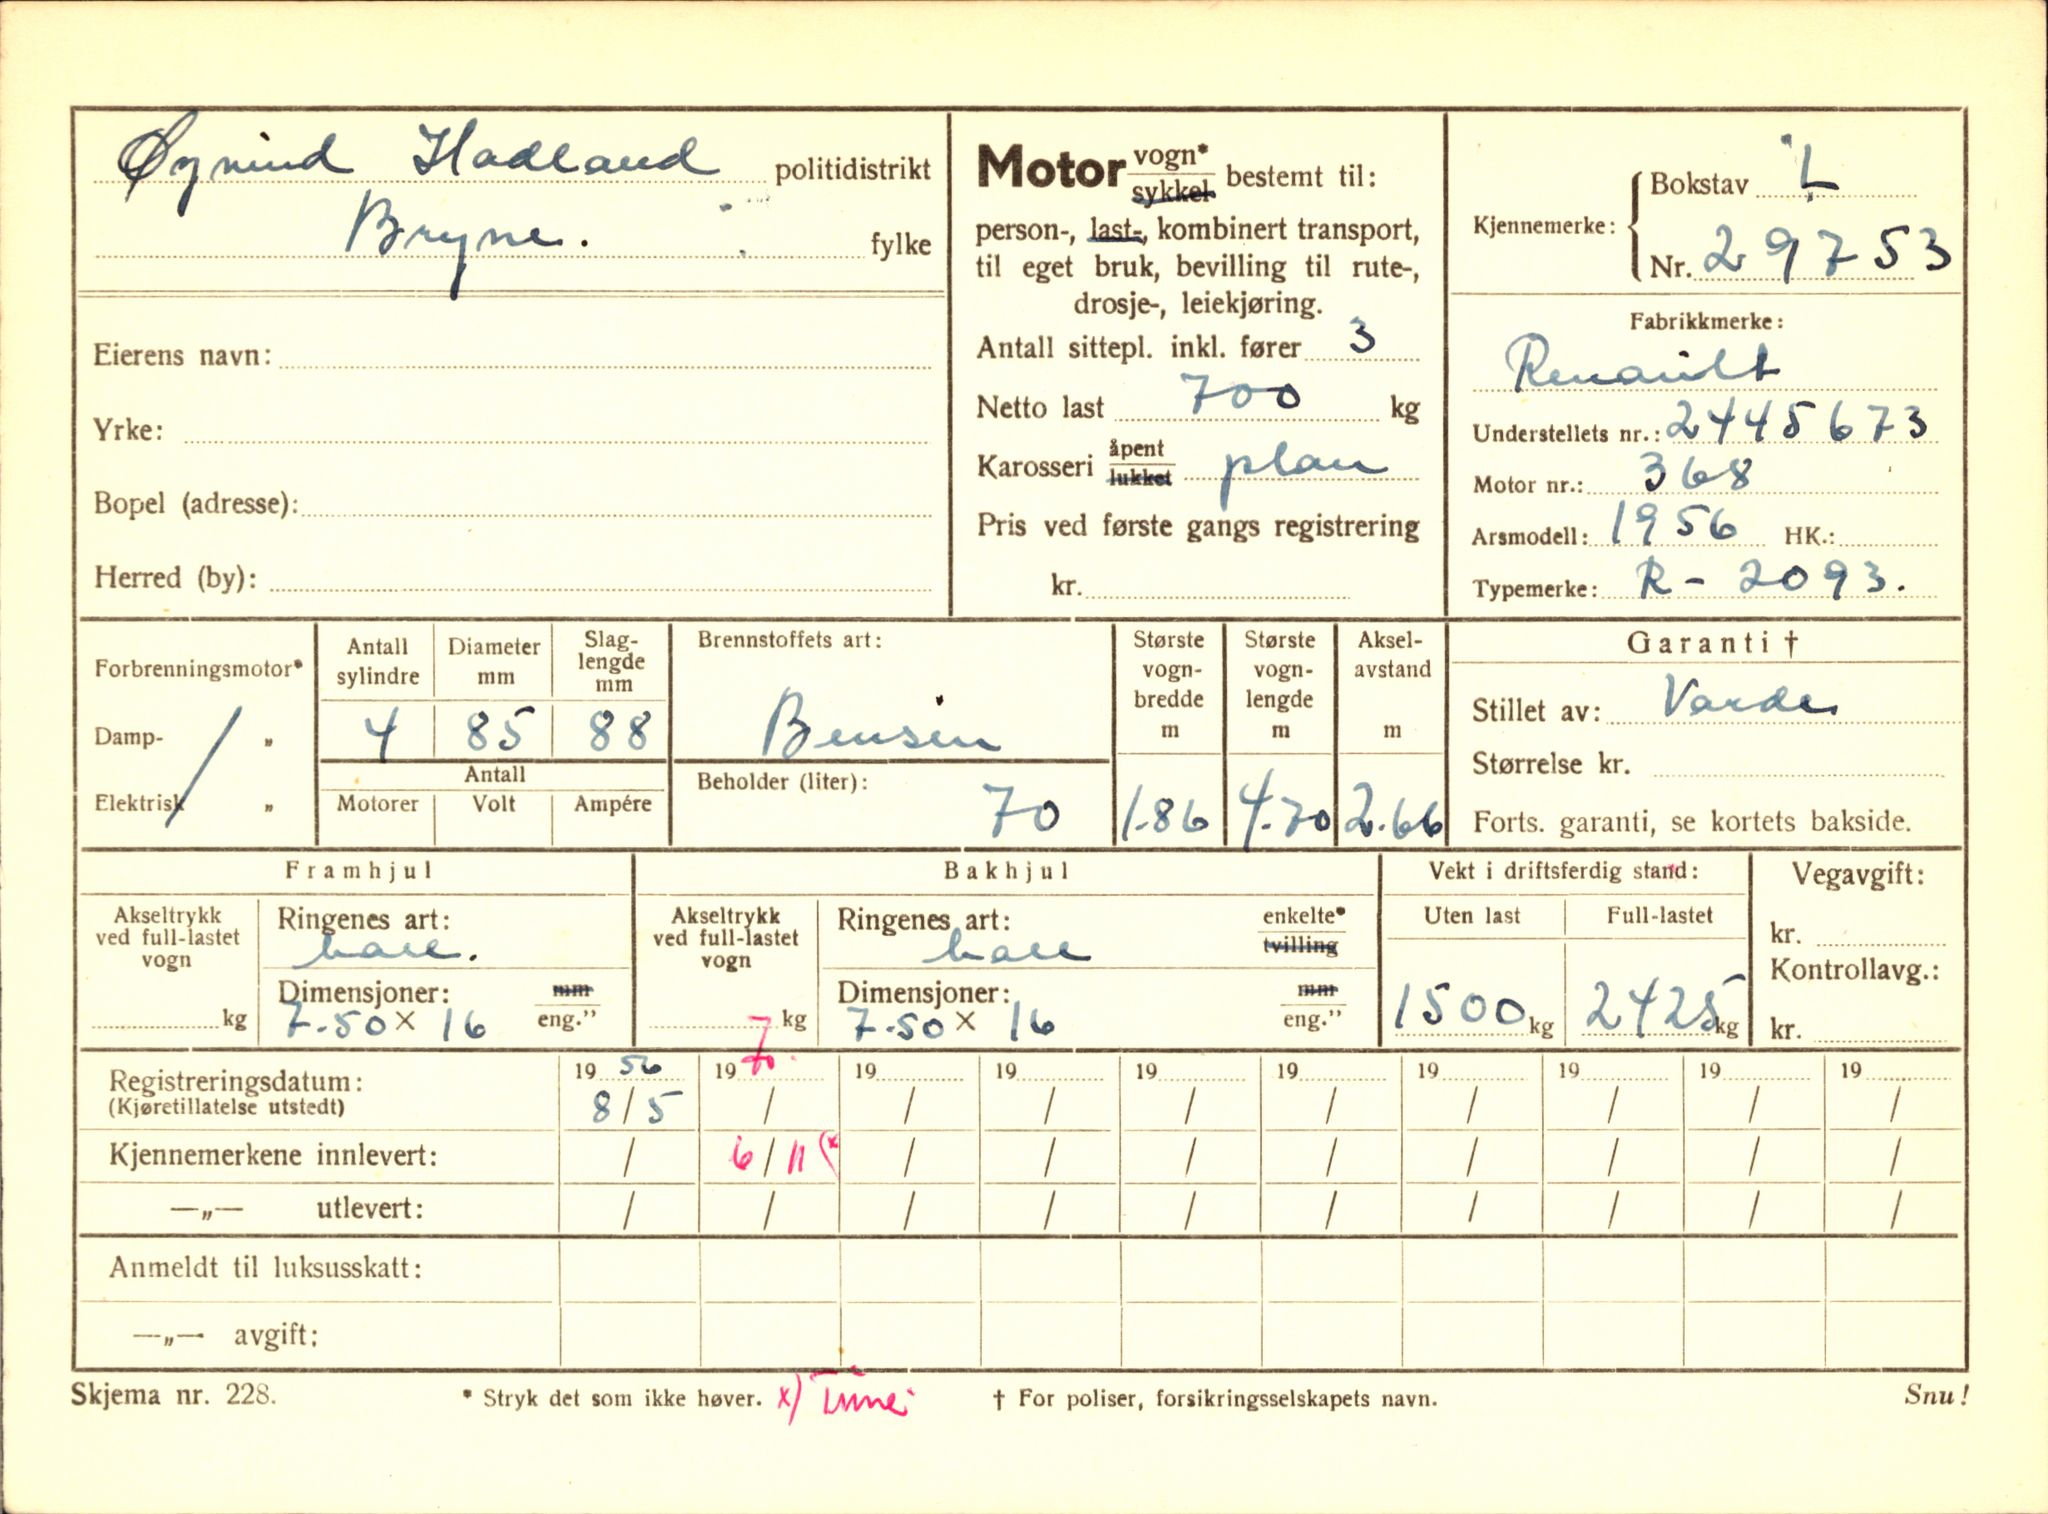 Øyvind Hadland politidistrikt
Bryne. fylke
Eierens navn:
Yrke:
Bopel (adresse):
Herred (by):
Motor vogn* sykkel bestemt til:
person-, last-, kombinert transport,
til eget bruk, bevilling til rute-,
drosje-, leiekjøring.
Antall sittepl. inkl. fører 3
Netto last 700 kg
Karosseri åpent lukket plan
Pris ved første gangs registrering
kr.
Kjennemerke: Bokstav L
Nr. 29753
Fabrikkmerke:
Renault
Understellets nr.: 2445673
Motor nr.: 368
Arsmodell: 1956 HK.:
Typemerke: R - 2093.
Forbrenningsmotor*
Damp- „
Elektrisk „
Antall sylindre Diameter mm Slaglengde mm
4 85 88
Antall
Motorer Volt Ampére
Brennstoffets art:
Bensin
Beholder (liter):
70
Største vognbredde m
1.86
Største vognlengde m
4.70
Akselavstand m
2.66
Garanti †
Stillet av: Varde
Størrelse kr.
Forts. garanti, se kortets bakside.
Framhjul
Akseltrykk ved full-lastet vogn
kg
Ringenes art:
Dimensjoner: mm
7.50 × 16 eng."
Bakhjul
Akseltrykk ved full-lastet vogn
kg
Ringenes art: enkelte*
tvilling
Dimensjoner: mm
7.50 × 16 eng."
Vekt i driftsferdig stand:
Uten last Full-lastet
1500 kg 2425 kg
Vegavgift:
kr.
Kontrollavg.:
kr.
Registreringsdatum: 19 56 19 70. 19 19 19 19 19 19 19 19
(Kjøretillatelse utstedt) 8/5 / / / / / / / / /
Kjennemerkene innlevert: / 6/11 (x / / / / / / / /
—„— utlevert: / / / / / / / / / /
Anmeldt til luksusskatt:
—„— avgift:
Skjema nr. 228. * Stryk det som ikke høver. x) † For poliser, forsikringsselskapets navn. Snu!